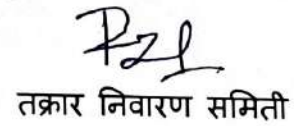 तक्रार निवारण समिती